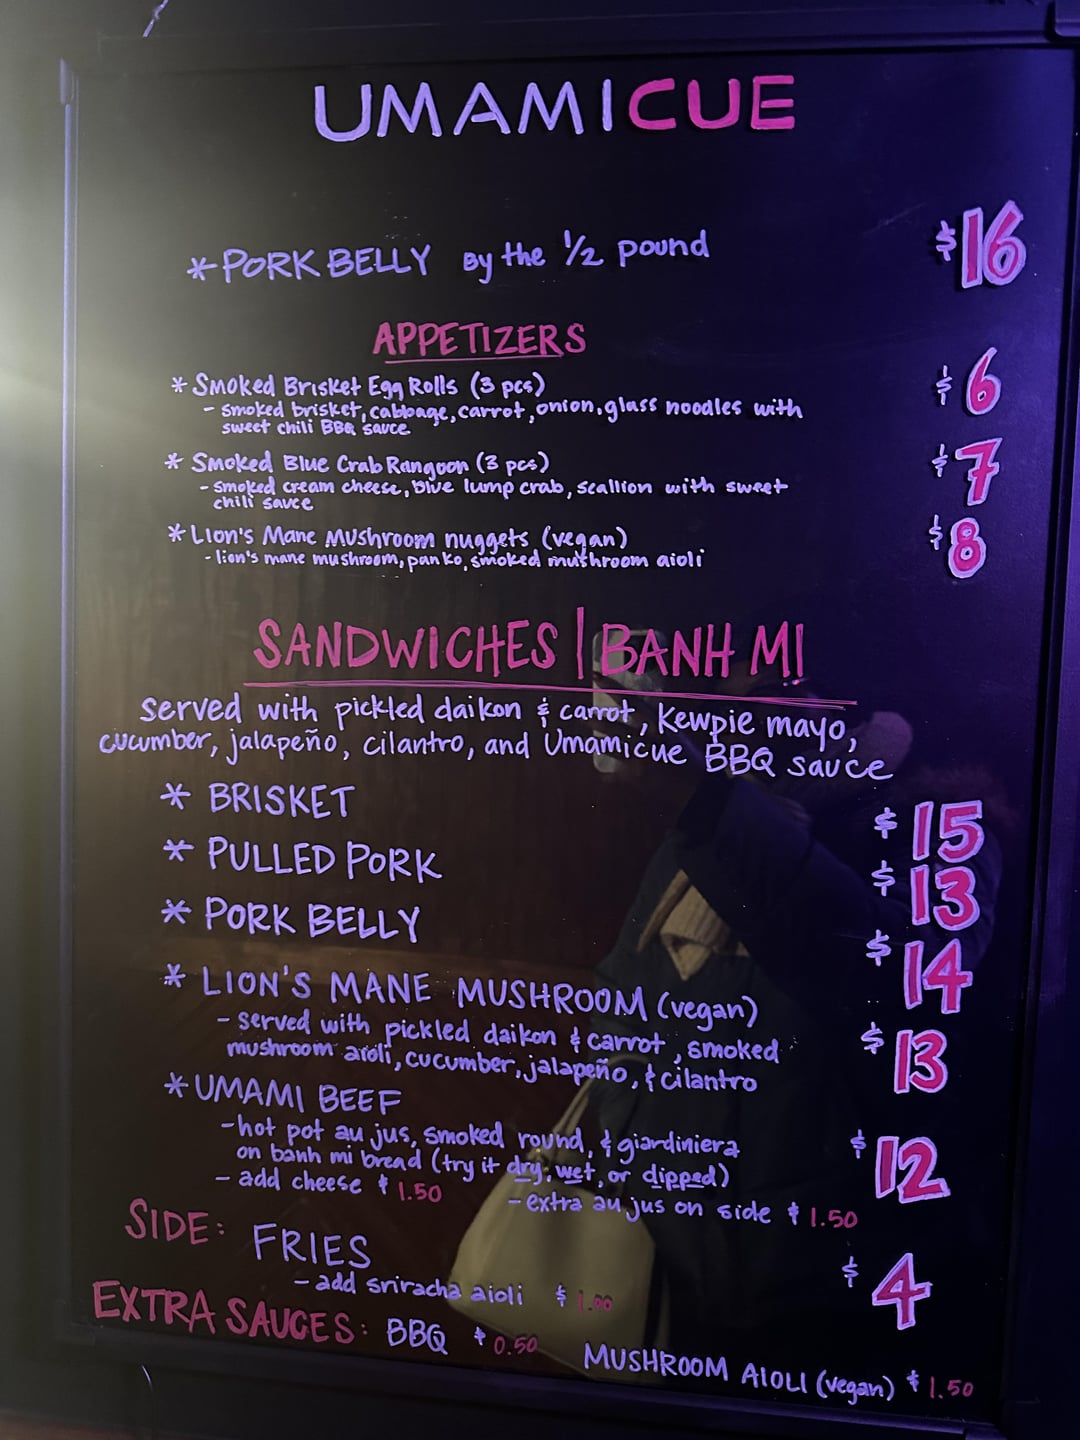 UMAMICUE
* PORK BELLY by the 1/2 pound $16
APPETIZERS
* Smoked Brisket Egg Rolls (3 pcs) $6
- smoked brisket, cabbage, carrot, onion, glass noodles with
sweet chili BBQ sauce
* Smoked Blue Crab Rangoon (3 pcs) $7
- smoked cream cheese, blue lump crab, scallion with sweet
chili sauce
* Lion's Mane Mushroom nuggets (vegan) $8
- lion's mane mushroom, panko, smoked muthroom aioli
SANDWICHES | BANH MI
served with pickled daikon & carrot, Kewpie mayo,
cucumber, jalapeño, cilantro, and Umamicue BBQ sauce
* BRISKET $15
* PULLED PORK $13
* PORK BELLY $14
* LION'S MANE MUSHROOM (vegan) $13
- served with pickled daikon & carrot, smoked
mushroom aioli, cucumber, jalapeño, & cilantro
* UMAMI BEEF $12
- hot pot au jus, smoked round, & giardiniera
on banh mi bread (try it dry, wet, or dipped)
- add cheese $1.50
- extra au jus on side $1.50
SIDE: FRIES $4
- add sriracha aioli $1.00
EXTRA SAUCES: BBQ $0.50 MUSHROOM AIOLI (vegan) $1.50